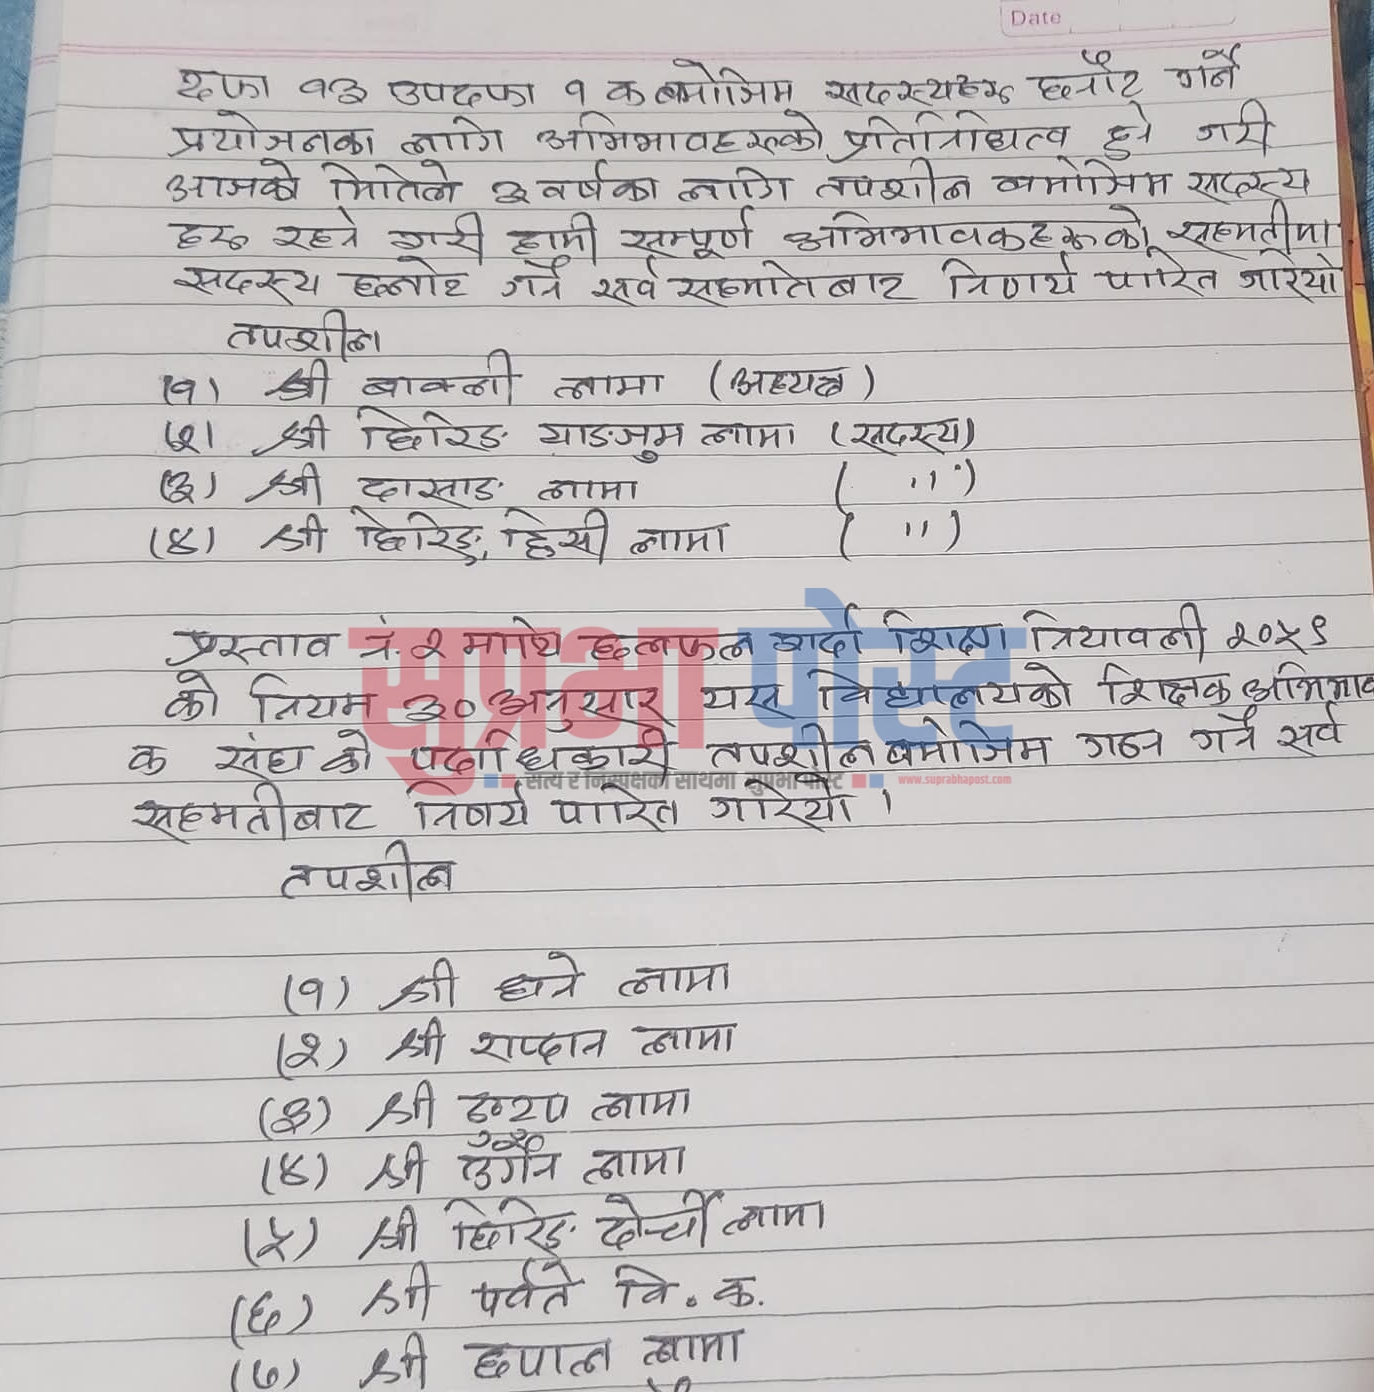 Date
दफा १३ उपदफा १ क बमोजिम सदस्यहरू छनौट गर्ने
प्रयोजनका लागि अभिभावहरूको प्रतिनिधित्व हुने गरी
आजको मितिले ३ वर्षका लागि तपशील बमोजिम सदस्य
हरू रहने गरी हामी सम्पूर्ण अभिभावकहरूको सहमतीमा
सदस्य छनोट गर्ने सर्व सहमतिबाट निर्णय पारित गरियो
तपशील
(१) श्री बाक्ली लामा (अध्यक्ष)
(२) श्री छिरिङ याङजुम लामा (सदस्य)
(३) श्री दासाङ लामा ( ,, )
(४) श्री छिरिङ लामा ( ,, )
प्रस्ताव नं. २ माथि छलफल गर्दा शिक्षा नियावली २०५९
को नियम ३० अनुसार यस विद्यालयको शिक्षक अभिभाव
क संघ को पदाधिकारी तपशील बमोजिम गठन गर्ने सर्व
सहमतीबाट निर्णय पारित गरियो ।
तपशील
(१) श्री छाने लामा
(२) श्री राप्दान लामा
(३) श्री लामा
(४) श्री उर्गेन लामा
(५) श्री छिरिङ दोर्ची लामा
(६) श्री पर्वते वि. क.
(७) श्री छपाल लामा
सुप्रभा पोस्ट
सत्य र निष्पक्षको साथमा सुप्रभा पोस्ट
www.suprabhapost.com